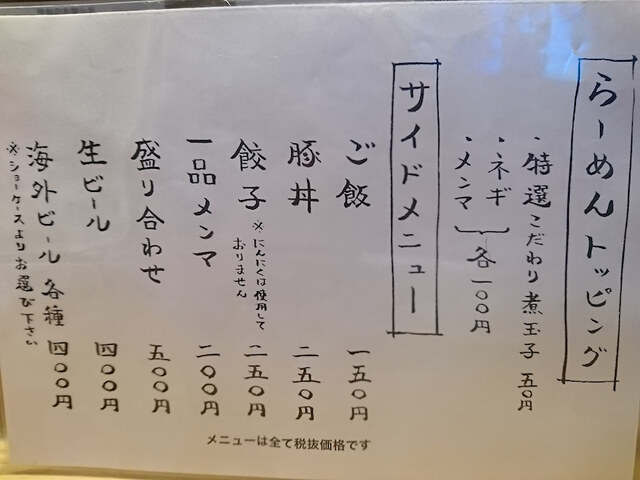 らーめんトッピング
・特選こだわり煮玉子 五〇円
・ネギ
・メンマ
各一〇〇円
サイドメニュー
ご飯 一五〇円
豚丼 二五〇円
餃子 ※にんにくは使用して
おりません 二五〇円
一品メンマ 二〇〇円
盛り合わせ 五〇〇円
生ビール 四〇〇円
海外ビール各種 四〇〇円
※ショーケースよりお選び下さい
メニューは全て税抜価格です